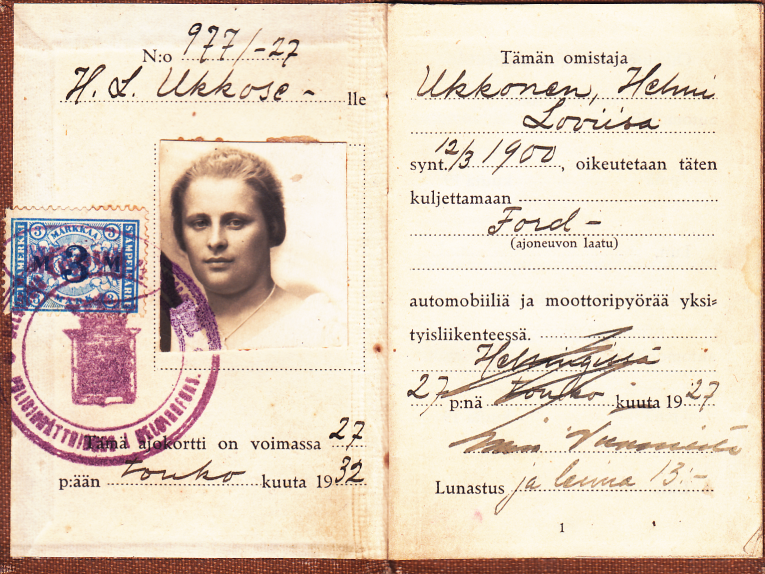 N:o 977/-27
H. L. Ukkose- lle
MARKKAA
3
STÄMPELMÄR
M 3 M
HELSINGFORS.
Tämä ajokortti on voimassa 27
p:ään touko kuuta 1932
Tämän omistaja
Ukkonen, Helmi
Loviisa
synt. 12/3 1900, oikeutetaan täten
kuljettamaan
Ford-
(ajoneuvon laatu)
automobiiliä ja moottoripyörää yksi=
tyisliikenteessä.
Helsingissä
27 p:nä touko kuuta 1927
Lunastus ja leima 13:-
1